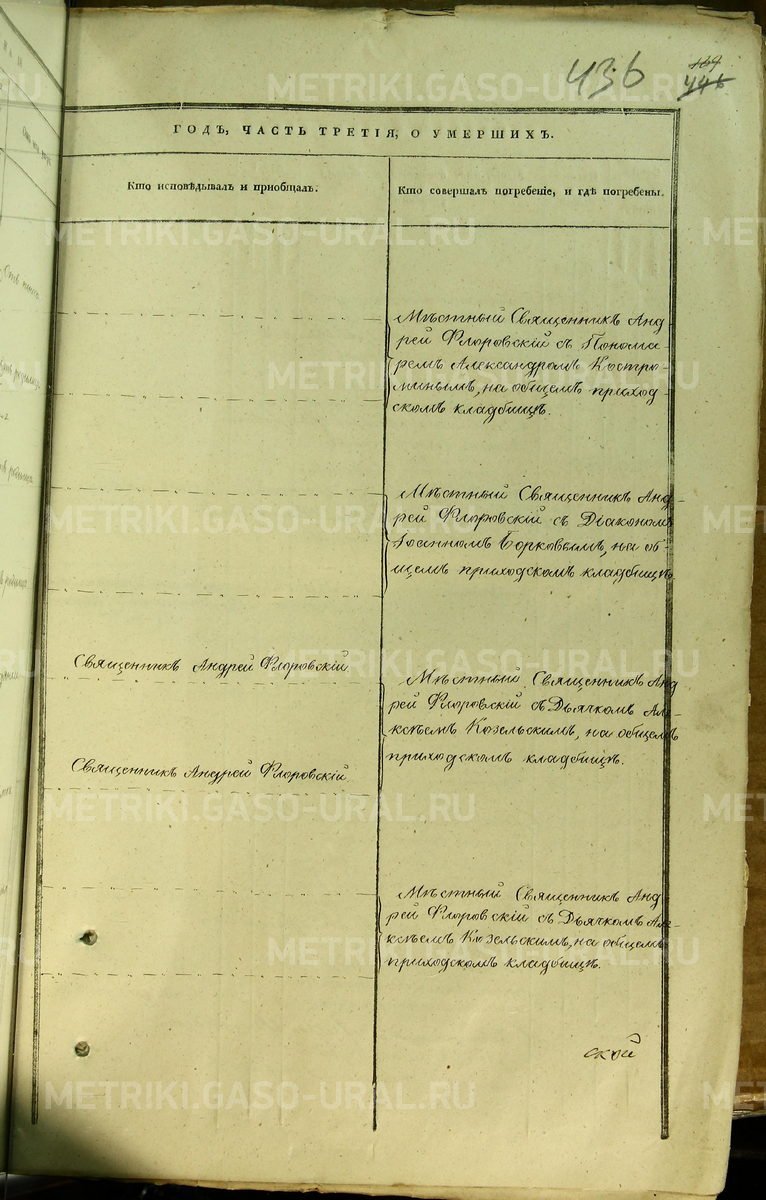 436
169
446
ГОДЪ, ЧАСТЬ ТРЕТІЯ, О УМЕРШИХЪ.
Кто исповѣдывалъ и пріобщалъ.
Кто совершалъ погребеніе, и гдѣ погребены.
Мѣстный Священникъ Анд-
рей Флоровскій съ Понома-
ремъ Александромъ Костро-
минымъ, на общемъ приход-
скомъ кладбищѣ.
Мѣстный Священникъ Анд-
рей Флоровскій съ Діакономъ
Іоанномъ Борковымъ, на об-
щемъ приходскомъ кладбищѣ.
Священникъ Андрей Флоровскій
Мѣстный Священникъ Анд-
рей Флоровскій съ Дьячкомъ Але-
ксѣемъ Козельскимъ, на общемъ
приходскомъ кладбищѣ.
Священникъ Андрей Флоровскій
Мѣстный Священникъ Анд-
рей Флоровскій съ Дьячкомъ Але-
ксѣемъ Козельскимъ, на общемъ
приходскомъ кладбищѣ.
ской
METRIKI.GASO-URAL.RU